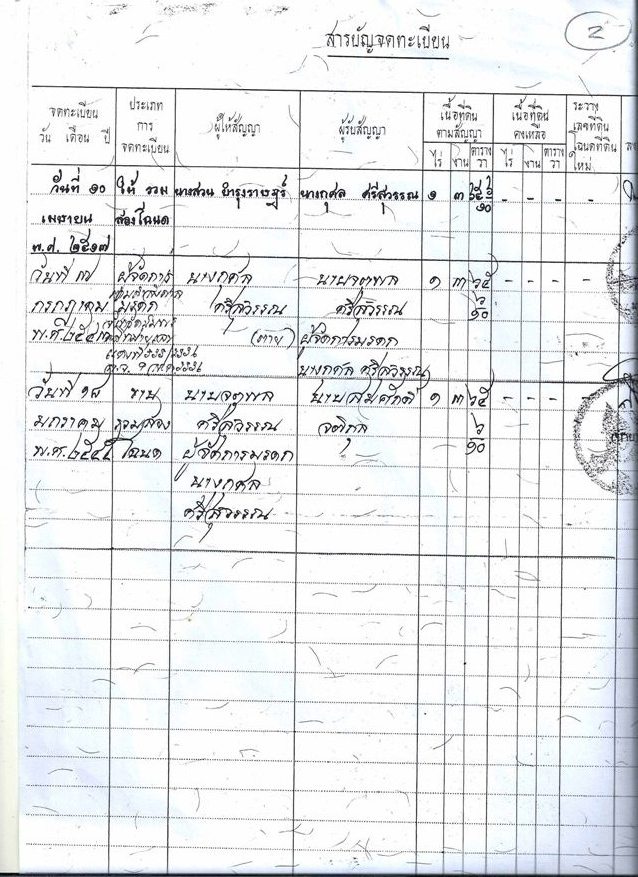 สารบัญจดทะเบียน
2
จดทะเบียน
วัน เดือน ปี
ประเภท
การ
จดทะเบียน
ผู้ให้สัญญา
ผู้รับสัญญา
เนื้อที่ดิน
ตามสัญญา
ไร่ งาน ตาราง
วา
เนื้อที่ดิน
คงเหลือ
ไร่ งาน ตาราง
วา
ระวาง
เลขที่ดิน
โฉนดที่ดิน
ใหม่
วันที่ ๑๐ ให้ รวม นางสวน บำรุงราษฎร์ นางกุศล ศรีสุวรรณ ๑ ๓ ๖๕ - - - -
เมษายน สองโฉนด ๖
๑๐
พ.ศ. ๒๕๑๗
วันที่ ๓๗ ผู้จัดการ นางกุศล นายจตุพล ๑ ๓ ๖๕ - - - -
กรกฎาคม มรดก ศรีสุวรรณ ศรีสุวรรณ ๖
๑๐
พ.ศ. (ตาย) ผู้จัดการมรดก
นางกุศล ศรีสุวรรณ
วันที่ ๑๘ ขาย นายจตุพล นายสมศักดิ์ ๑ ๓ ๖๕ - - - -
มกราคม รวมสอง ศรีสุวรรณ จติกุล ๖
๑๐
พ.ศ. โฉนด ผู้จัดการมรดก
นางกุศล
ศรีสุวรรณ